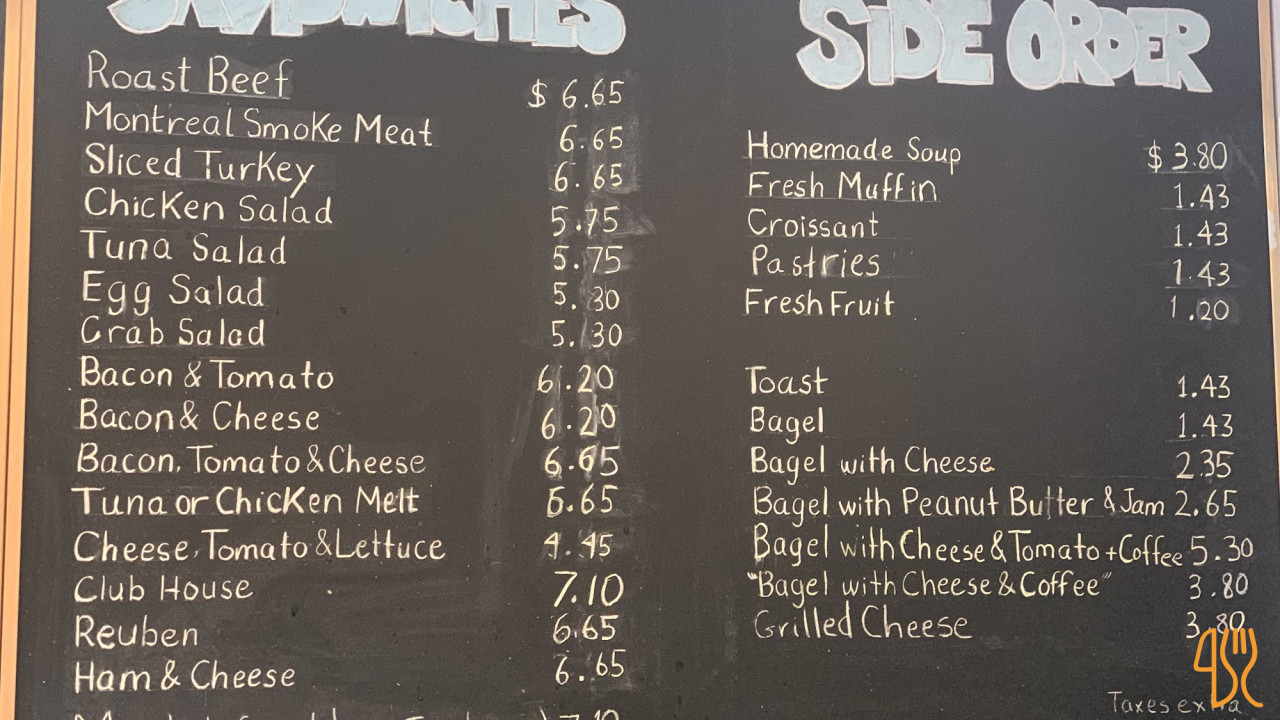 SANDWICHES
Roast Beef $ 6.65
Montreal Smoke Meat 6.65
Sliced Turkey 6.65
Chicken Salad 5.75
Tuna Salad 5.75
Egg Salad 5.30
Crab Salad 5.30
Bacon & Tomato 6.20
Bacon & Cheese 6.20
Bacon, Tomato & Cheese 6.65
Tuna or Chicken Melt 6.65
Cheese, Tomato & Lettuce 4.45
Club House 7.10
Reuben 6.65
Ham & Cheese 6.65
7.10
SIDE ORDER
Homemade Soup $ 3.80
Fresh Muffin 1.43
Croissant 1.43
Pastries 1.43
Fresh Fruit 1.20
Toast 1.43
Bagel 1.43
Bagel with Cheese 2.35
Bagel with Peanut Butter & Jam 2.65
Bagel with Cheese & Tomato + Coffee 5.30
"Bagel with Cheese & Coffee" 3.80
Grilled Cheese 3.80
Taxes extra